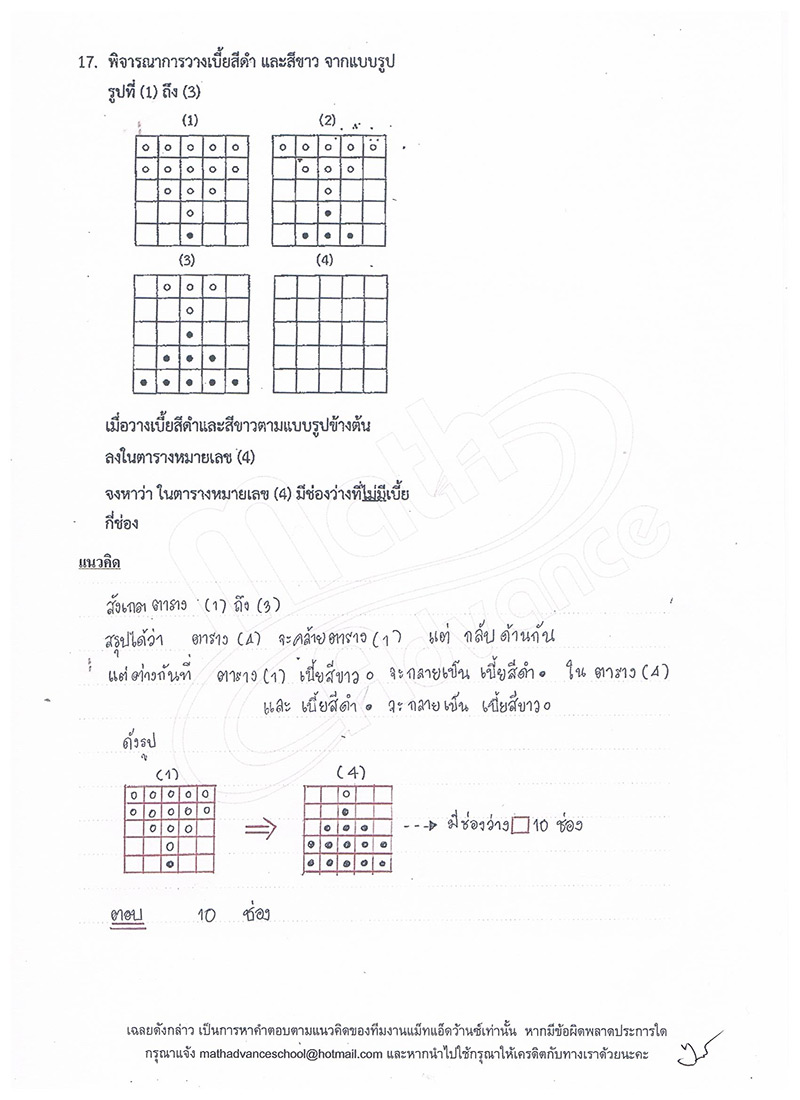 17. พิจารณาการวางเบี้ยสีดำ และสีขาว จากแบบรูป
รูปที่ (1) ถึง (3)
(1) (2)
(3) (4)
เมื่อวางเบี้ยสีดำและสีขาวตามแบบรูปข้างต้น
ลงในตารางหมายเลข (4)
จงหาว่า ในตารางหมายเลข (4) มีช่องว่างที่ไม่มีเบี้ย
กี่ช่อง
แนวคิด
สังเกต ตาราง (1) ถึง (3)
สรุปได้ว่า ตาราง (4) จะคล้ายตาราง (1) แต่ กลับด้านกัน
แต่ต่างกันที่ ตาราง (1) เบี้ยสีขาว จะกลายเป็น เบี้ยสีดำ ใน ตาราง (4)
และ เบี้ยสีดำ จะกลายเป็น เบี้ยสีขาว
ดังรูป
(1) (4)
มีช่องว่าง 10 ช่อง
ตอบ 10 ช่อง
Math Advance
เฉลยดังกล่าว เป็นการหาคำตอบตามแนวคิดของทีมงานแม็ทแอ็ดว้านซ์เท่านั้น หากมีข้อผิดพลาดประการใด
กรุณาแจ้ง mathadvanceschool@hotmail.com และหากนำไปใช้กรุณาให้เครดิตกับทางเราด้วยนะคะ